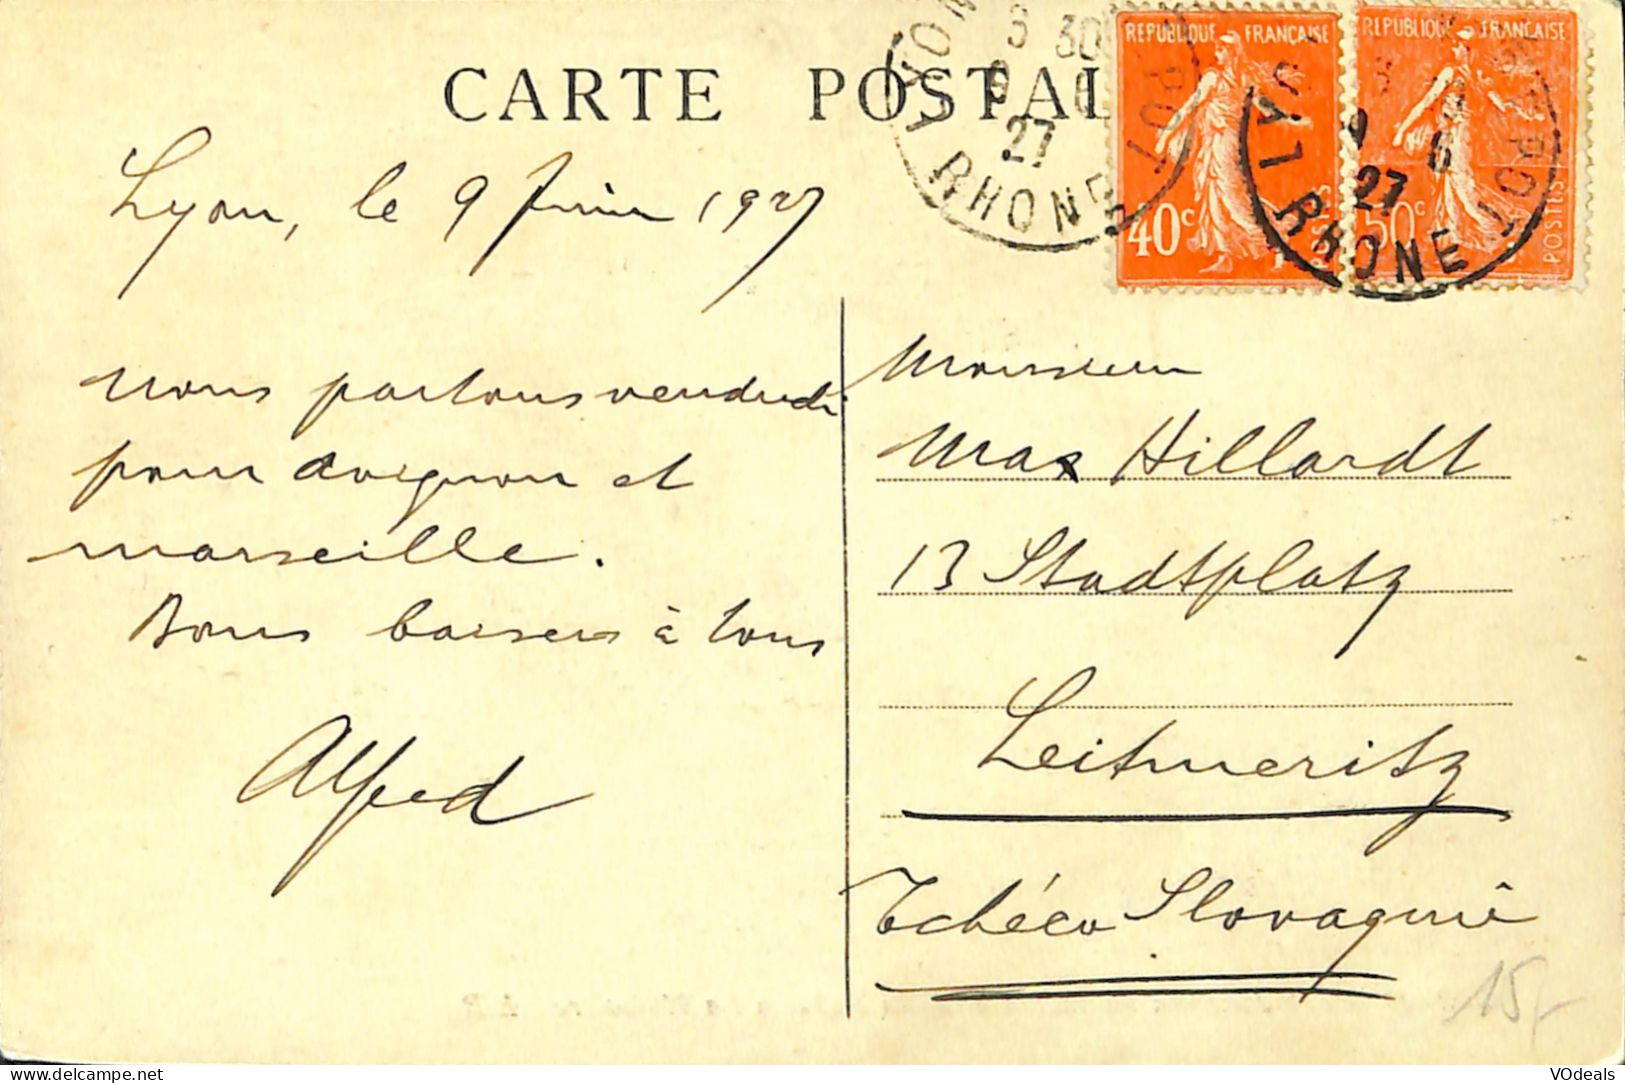 CARTE POSTAL
REPUBLIQUE FRANÇAISE
40c
REPUBLIQUE FRANÇAISE
50c
POSTES
LYON
RHONE
27
LYON
RHONE
9 6
27
Lyon, le 9 Juin 1927
nous partons vendredi
pour avignon et
marseille.
Bons baisers à tous
Alfred
Monsieur
Max Hillardt
13 Stadtplatz
Leitmeritz
Tchéco Slovaquie
15/-
VOdeals
www.delcampe.net